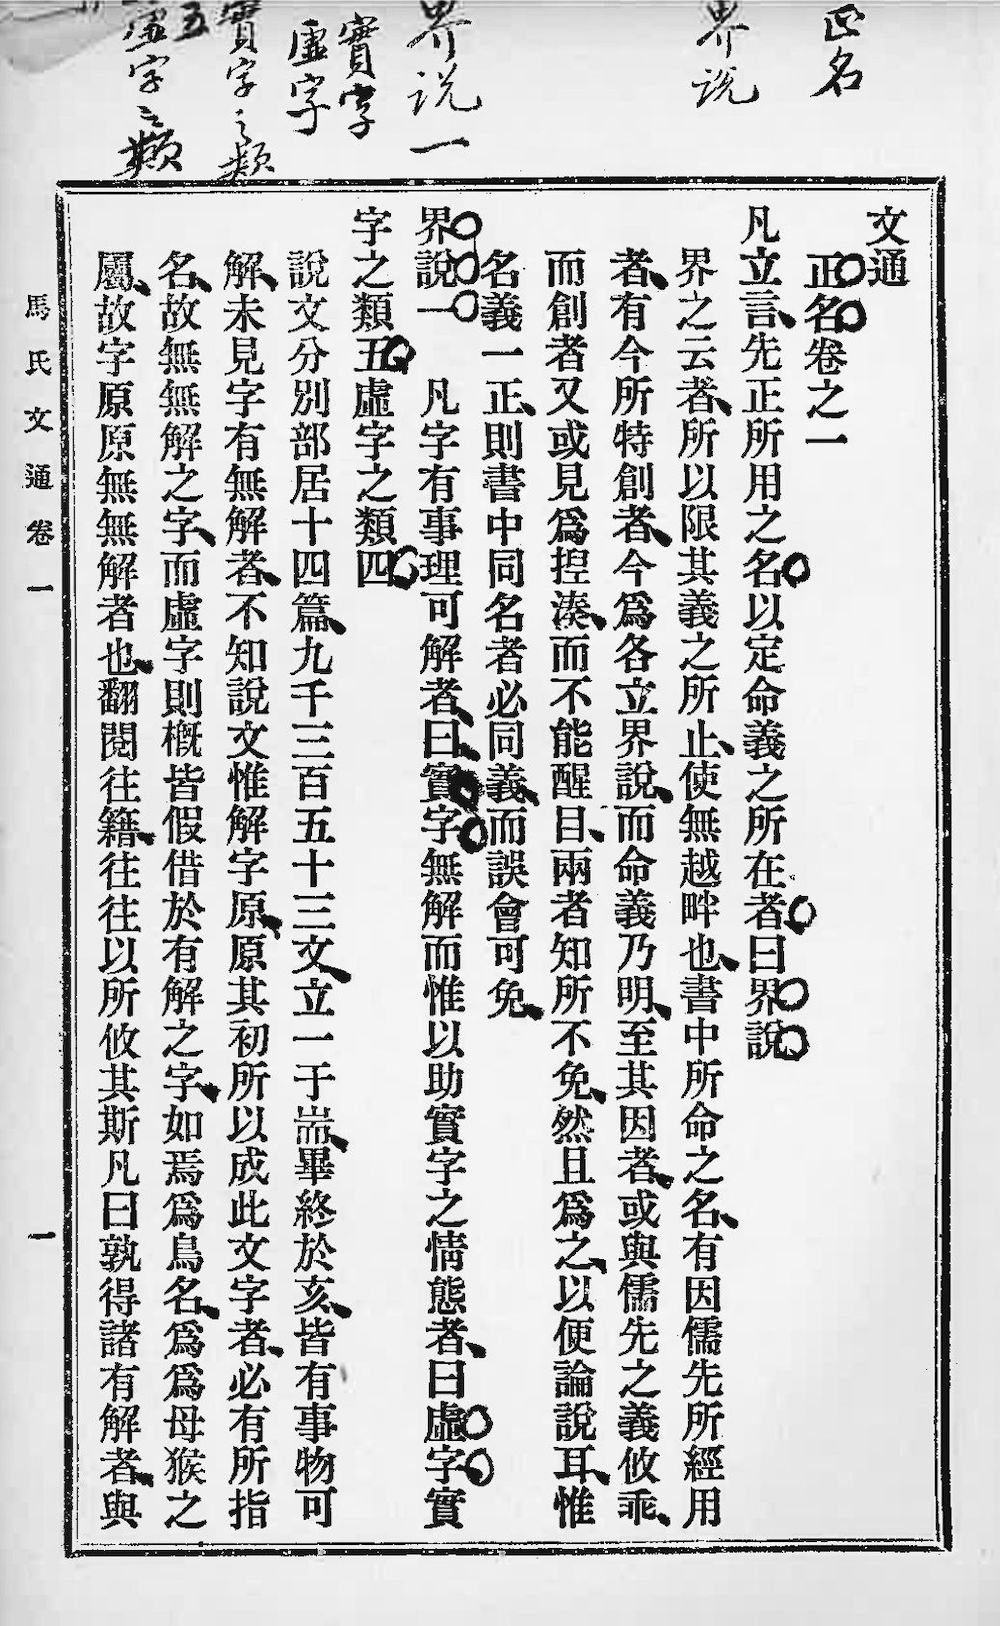 正名
界說
界說一
實字
虛字
實字之類
五
虛字之類
文通
正名卷之一
凡立言先正所用之名以定命義之所在者曰界說
界之云者所以限其義之所止使無越畔也書中所命之名有因儒先所經用
者有今所特創者今爲各立界說而命義乃明至其因者或與儒先之義攸乖
而創者又或見爲揑湊而不能醒目兩者知所不免然且爲之以便論說耳惟
名義一正則書中同名者必同義而誤會可免
界說一　凡字有事理可解者曰實字無解而惟以助實字之情態者曰虛字實
字之類五虛字之類四
說文分別部居十四篇九千三百五十三文立一于耑畢終於亥皆有事物可
解未見字有無解者不知說文惟解字原原其初所以成此文字者必有所指
名故無無解之字而虛字則槪皆假借於有解之字如焉爲鳥名爲爲母猴之
屬故字原原無無解者也翻閱往籍往往以所攸其斯凡曰孰得諸有解者與
馬氏文通卷一
一